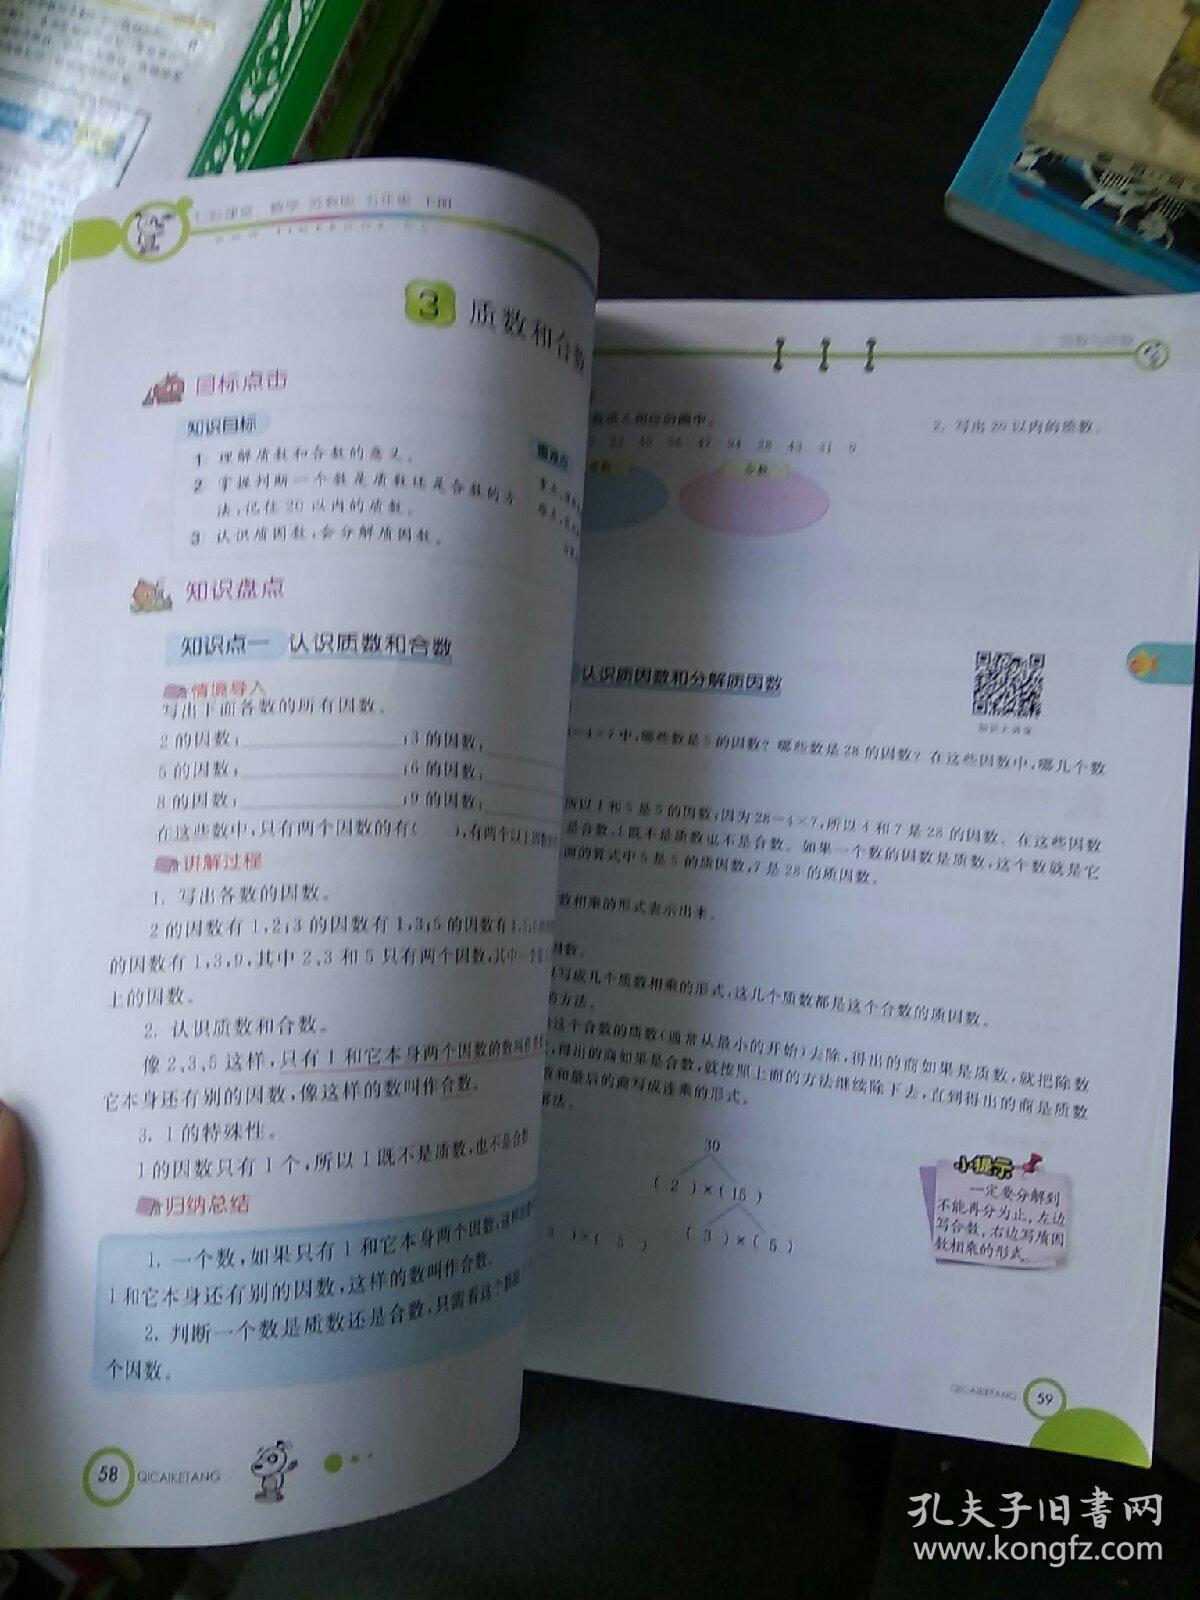 七彩课堂 数学 苏教版 五年级 下册
3 质数和合数
目标点击
知识目标
1 理解质数和合数的意义。
2 掌握判断一个数是质数还是合数的方
法,记住20以内的质数。
3 认识质因数,会分解质因数。
重难点
知识盘点
知识点一 认识质数和合数
情境导入
写出下面各数的所有因数。
2的因数: ;3的因数:
5的因数: ;6的因数:
8的因数: ;9的因数:
在这些数中,只有两个因数的有( ),有两个以上因数的
讲解过程
1. 写出各数的因数。
2的因数有1,2;3的因数有1,3;5的因数有1,5;
的因数有1,3,9,其中2、3和5只有两个因数,其中一个
上的因数。
2. 认识质数和合数。
像2、3、5这样,只有1和它本身两个因数的数叫作
它本身还有别的因数,像这样的数叫作合数。
3. 1的特殊性。
1的因数只有1个,所以1既不是质数,也不是合数
归纳总结
1. 一个数,如果只有1和它本身两个因数,这样的
1和它本身还有别的因数,这样的数叫作合数。
2. 判断一个数是质数还是合数,只需看这个数
个因数。
58 QICAIKETANG
填入相应的圈中。
23 40 36 47 94 28 43 31 9
质数 合数
2. 写出20以内的质数。
认识质因数和分解质因数
=4×7中,哪些数是5的因数?哪些数是28的因数?在这些因数中,哪几个数
所以1和5是5的因数;因为28=4×7,所以4和7是28的因数。在这些因数
是合数,1既不是质数也不是合数。如果一个数的因数是质数,这个数就是它
面的算式中5是5的质因数,7是28的质因数。
数相乘的形式表示出来。
因数。
写成几个质数相乘的形式,这几个质数都是这个合数的质因数。
的方法。
这个合数的质数(通常从最小的开始)去除,得出的商如果是质数,就把除数
,得出的商如果是合数,就按照上面的方法继续除下去,直到得出的商是质数
数和最后的商写成连乘的形式。
解法。
30
( 2 )×( 15 )
3 )×( 5 ) ( 3 )×( 5 )
小提示
一定要分解到
不能再分为止,左边
写合数,右边写质因
数相乘的形式。
QICAIKETANG 59
孔夫子旧书网
www.kongfz.com